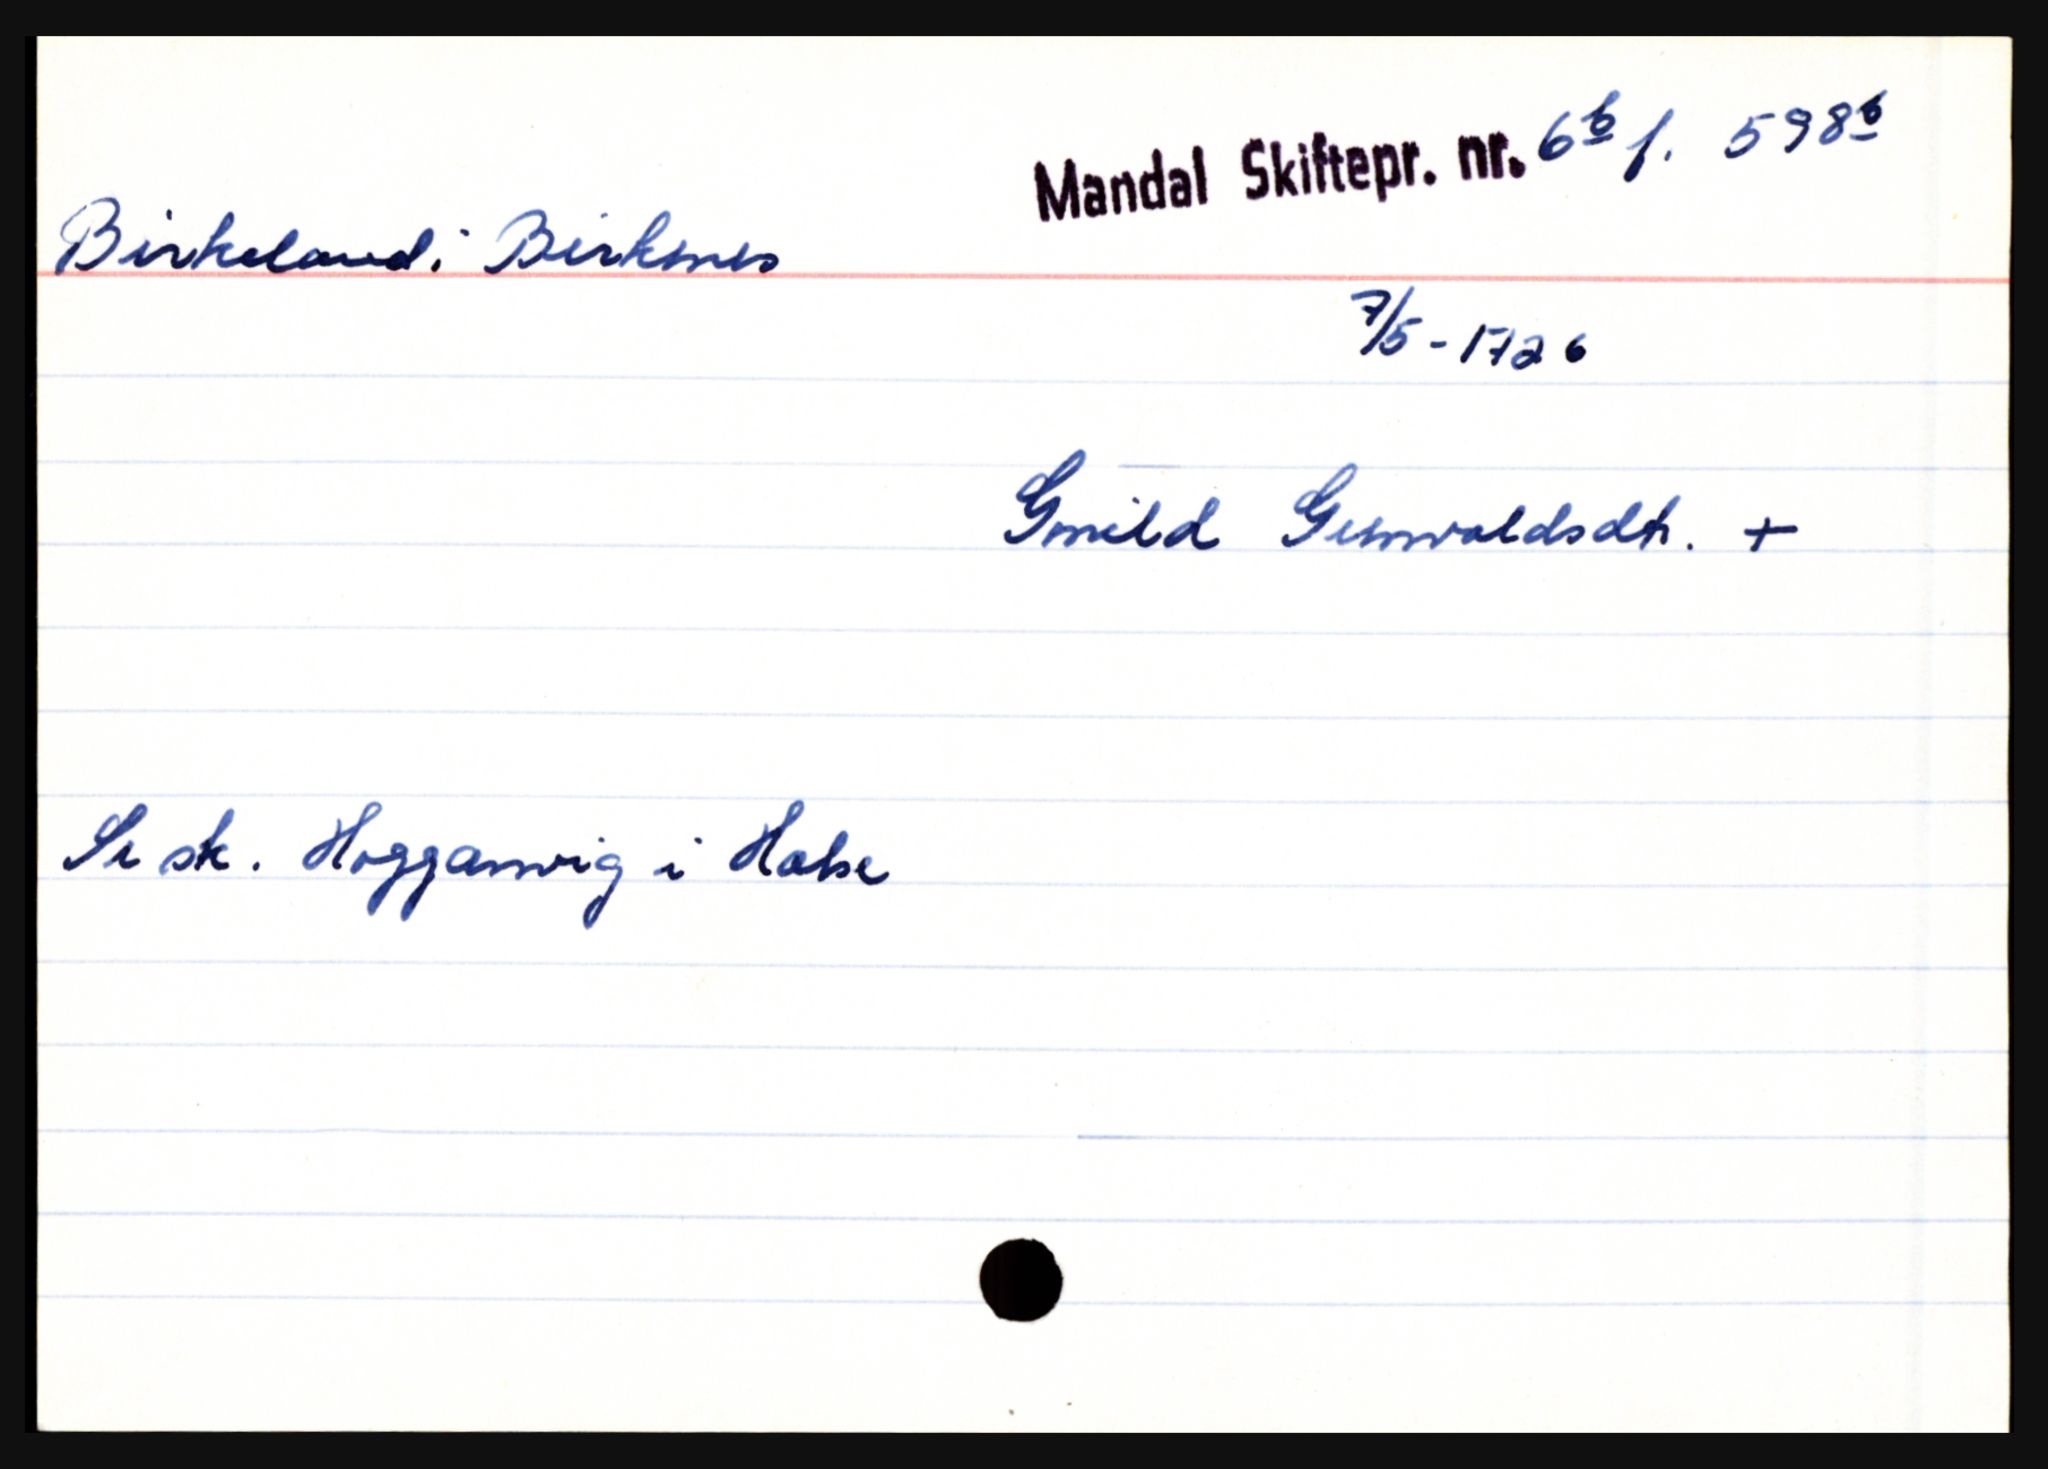 Mandal Skiftepr. nr. 6b f. 598b
Birkeland i Birkenes
7/5 - 1726
Gunild Gunvaldsdtr. +
Se sk. Hogganvig i Halse